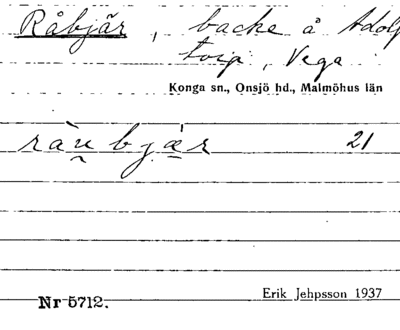 Råbjär, backe å Adolf
torp, Vega
Konga sn., Onsjö hd., Malmöhus län
ràu̯bjæ̀r 21
Erik Jehpsson 1937
Nr 5712.